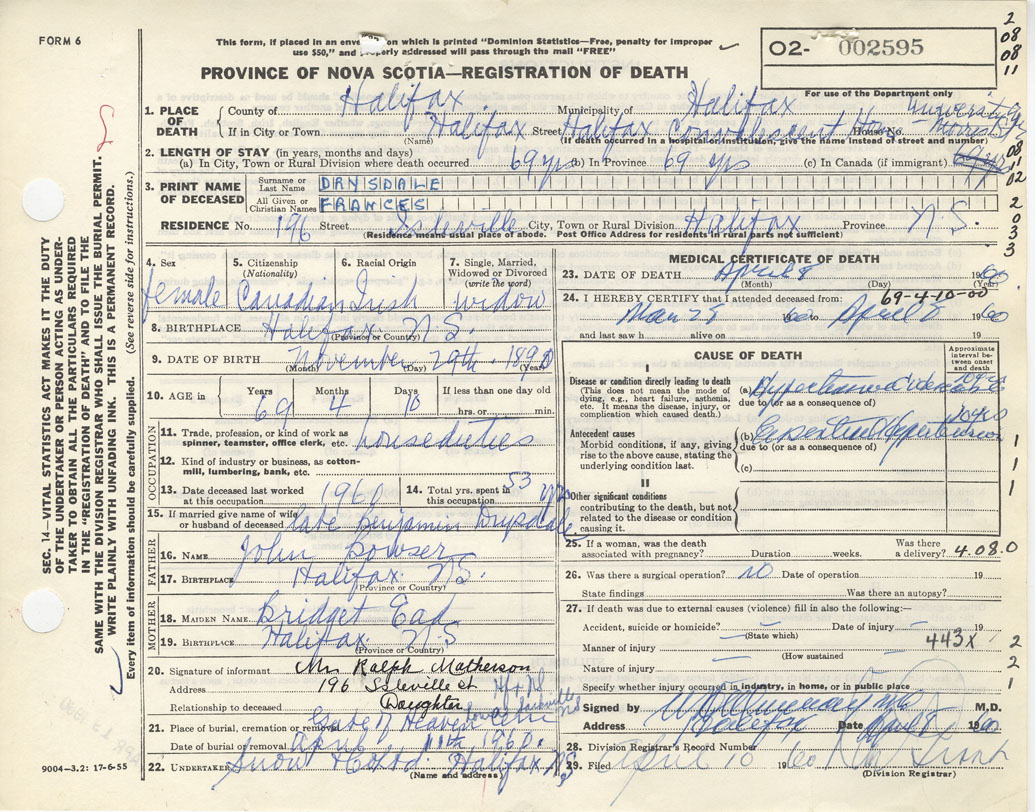 FORM 6
This form, if placed in an envelope on which is printed "Dominion Statistics—Free, penalty for improper
use $50," and properly addressed will pass through the mail "FREE"
O2- 002595
For use of the Department only
PROVINCE OF NOVA SCOTIA—REGISTRATION OF DEATH
2
08
08
11
1. PLACE OF DEATH
County of Halifax Municipality of Halifax
If in City or Town Halifax Street Halifax Convalescent House No.
University
(Name) (If death occurred in a hospital or institution, give the name instead of street and number)
2. LENGTH OF STAY (in years, months and days)
(a) In City, Town or Rural Division where death occurred 69 yrs (b) In Province 69 yrs (c) In Canada (if immigrant)
3. PRINT NAME OF DECEASED
Surname or Last Name DRYSDALE
All Given or Christian Names FRANCES
RESIDENCE No. 196 Street Isleville City, Town or Rural Division Halifax Province N.S.
(Residence means usual place of abode. Post Office Address for residents in rural parts not sufficient)
08
11
02
2
0
3
3
SEC. 14—VITAL STATISTICS ACT MAKES IT THE DUTY
OF THE UNDERTAKER OR PERSON ACTING AS UNDER-
TAKER TO OBTAIN ALL THE PARTICULARS REQUIRED
IN THE "REGISTRATION OF DEATH" AND TO FILE THE
SAME WITH THE DIVISION REGISTRAR WHO SHALL ISSUE THE BURIAL PERMIT.
WRITE PLAINLY WITH UNFADING INK. THIS IS A PERMANENT RECORD.
Every item of information should be carefully supplied. (See reverse side for instructions.)
4. Sex
female
5. Citizenship
(Nationality)
Canadian
6. Racial Origin
Irish
7. Single, Married,
Widowed or Divorced
(write the word)
widow
8. BIRTHPLACE Halifax N.S.
(Province or Country)
9. DATE OF BIRTH November 29th 1890
(Month) (Day) (Year)
10. AGE in
Years Months Days If less than one day old
69 4 10 hrs. or min.
OCCUPATION
11. Trade, profession, or kind of work as
spinner, teamster, office clerk, etc. housedieties
12. Kind of industry or business, as cotton-
mill, lumbering, bank, etc.
13. Date deceased last worked
at this occupation 1960
14. Total yrs. spent in
this occupation 53 yrs
15. If married give name of wife
or husband of deceased late Benjamin Drysdale
FATHER
16. NAME John Bowser
17. BIRTHPLACE Halifax N.S.
(Province or Country)
MOTHER
18. MAIDEN NAME Bridget
19. BIRTHPLACE Halifax N.S
(Province or Country)
20. Signature of informant Mrs Ralph Matherson
Address 196 Isleville St Hfx NS
Relationship to deceased Daughter
21. Place of burial, cremation or removal Gate of Heaven
Date of burial or removal April 11th 1960.
22. UNDERTAKER Snow Halifax N.S
(Name and address)
9004-3.2: 17-6-55
MEDICAL CERTIFICATE OF DEATH
23. DATE OF DEATH April 8 1960
(Month) (Day)
69-4-10-00
24. I HEREBY CERTIFY that I attended deceased from:
Mar 25 1960 to April 8 1960
and last saw h alive on 19
CAUSE OF DEATH
Approximate
interval be-
tween onset
and death
I
Disease or condition directly leading to death
(This does not mean the mode of
dying, e.g., heart failure, asthenia,
etc. It means the disease, injury, or
complication which caused death.)
(a) Hypertensive
due to (or as a consequence of)
Antecedent causes
Morbid conditions, if any, giving
rise to the above cause, stating the
underlying condition last.
(b) Essential Hypertension
due to (or as a consequence of)
(c)
II
Other significant conditions
contributing to the death, but not
related to the disease or condition
causing it.
1
1
1
25. If a woman, was the death
associated with pregnancy? Duration weeks. Was there
a delivery? 4.08.0
26. Was there a surgical operation? no Date of operation 19
State findings Was there an autopsy?
27. If death was due to external causes (violence) fill in also the following:—
Accident, suicide or homicide? Date of injury 19
(State which)
Manner of injury 443X
(How sustained)
Nature of injury
Specify whether injury occurred in industry, in home, or in public place
2
2
1
Signed by M.D.
Address Halifax Date April 8 1960
28. Division Registrar's Record Number
29. Filed April 10 1960
(Division Registrar)